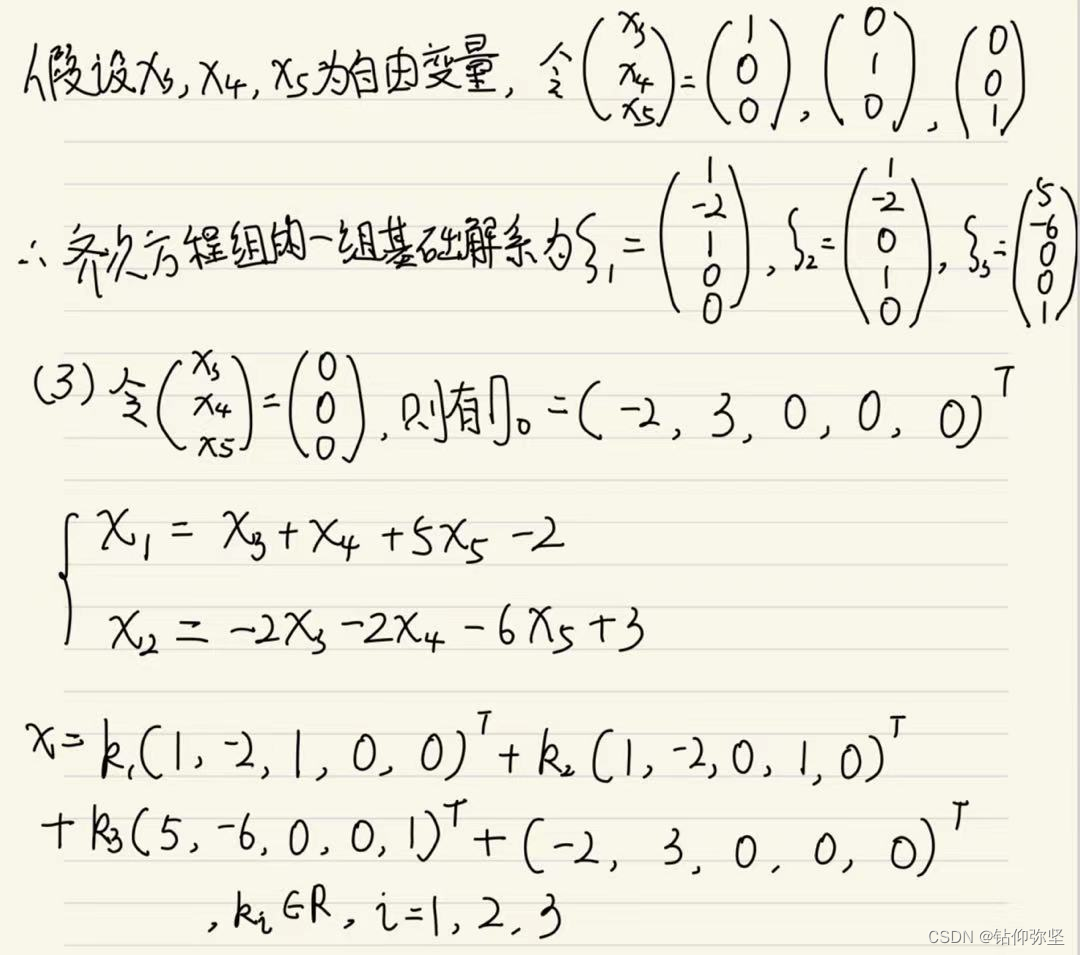 假设x₃, x₄, x₅为自由变量, 令(x₃ x₄ x₅) = (1 0 0), (0 1 0), (0 0 1)
∴ 齐次方程组的一组基础解系为ξ₁ = (1 -2 1 0 0), ξ₂ = (1 -2 0 1 0), ξ₃ = (5 -6 0 0 1)
(3) 令(x₃ x₄ x₅) = (0 0 0), 则有η₀ = (-2, 3, 0, 0, 0)ᵀ
{ x₁ = x₃ + x₄ + 5x₅ - 2
x₂ = -2x₃ - 2x₄ - 6x₅ + 3
x = k₁(1, -2, 1, 0, 0)ᵀ + k₂(1, -2, 0, 1, 0)ᵀ
+ k₃(5, -6, 0, 0, 1)ᵀ + (-2, 3, 0, 0, 0)ᵀ
, kᵢ∈R, i=1, 2, 3
CSDN @钻仰弥坚